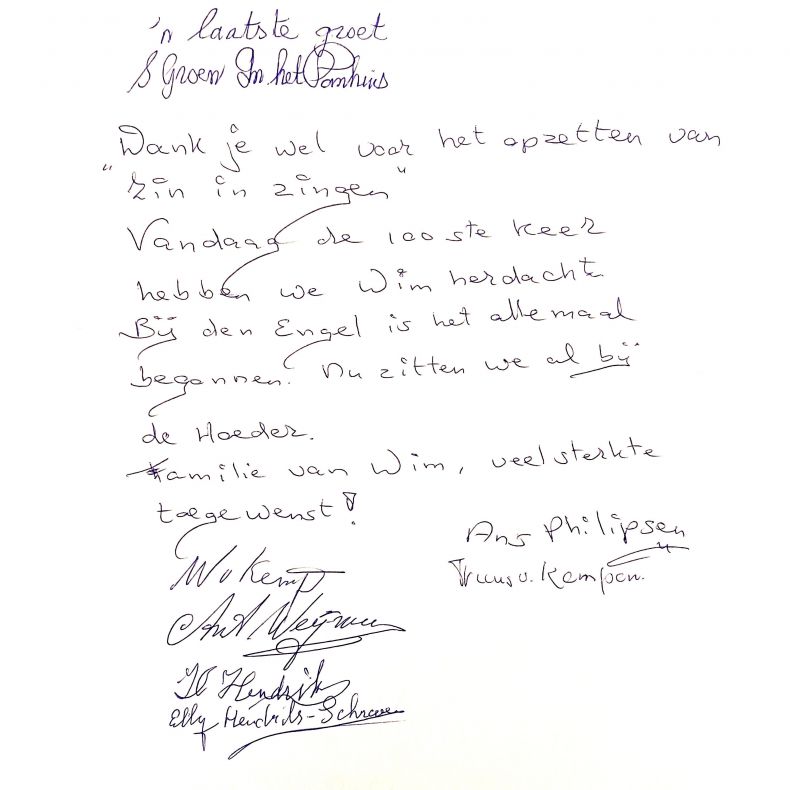 'n laatste groet
S Groen In het Panhuis
Dank je wel voor het opzetten van
"Zin in zingen"
Vandaag de 100 ste keer
hebben we Wim herdacht.
Bij den Engel is het allemaal
begonnen. Nu zitten we al bij
de Hoeder.
Familie van Wim, veel sterkte
toegewenst!
Ans Philipsen
Truus v. Kempen.
W v Kemp
Hendriks
Elly Hendriks-Schreven